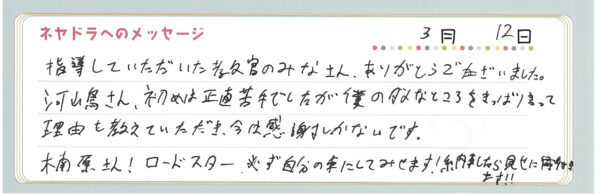 ネヤドラへのメッセージ 3月 12日
指導していただいた教官のみなさん、ありがとうございました。
河嶋さん、初めは正直苦手でしたが僕のダメなところをきっぱり言って
理由も教えていただき、今は感謝しかないです。
楠原さん!ロードスター、必ず自分の車にしてみせます!納車したら見せに
きます!!